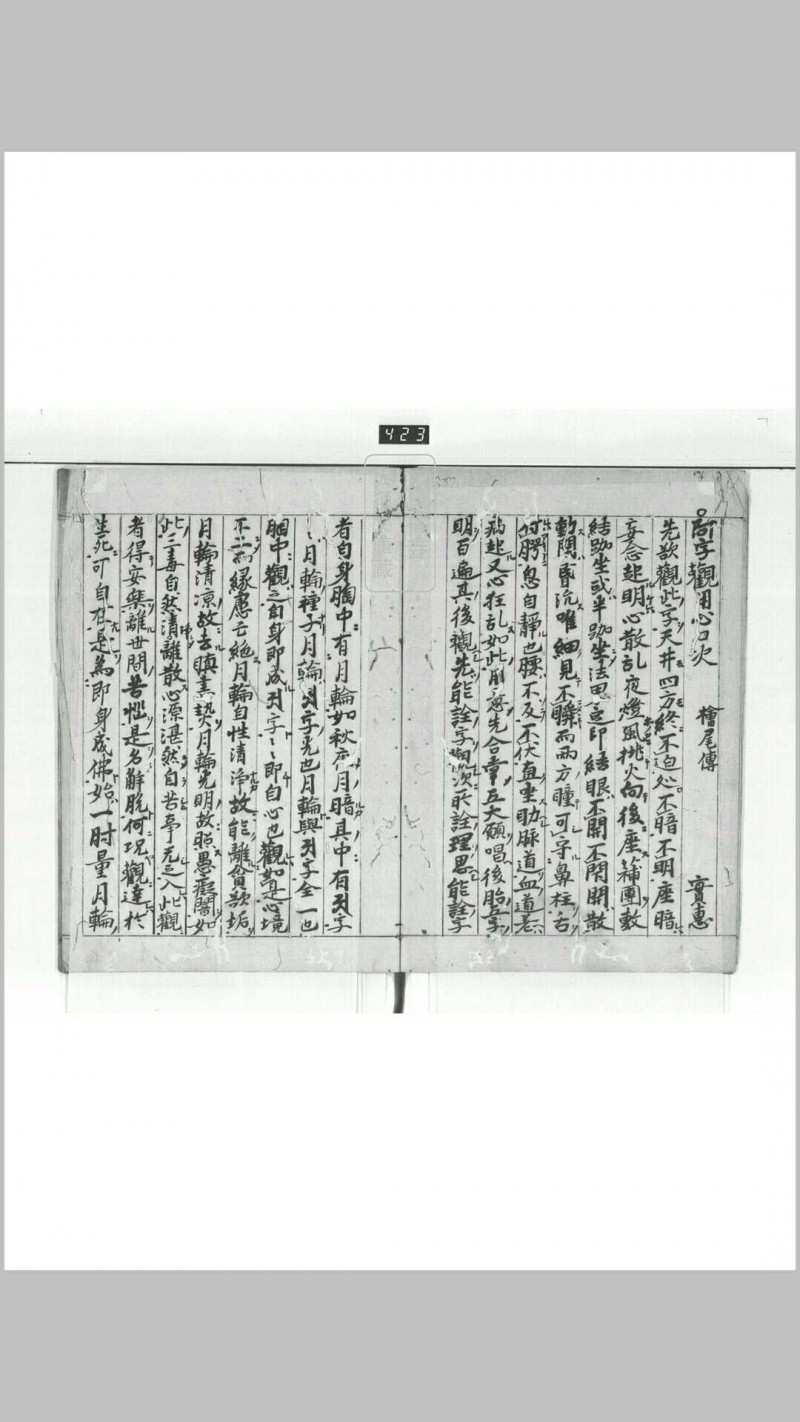 423
阿字觀用心口次 檜尾傳 實惠
先欲觀此字天井四方終不迫処不暗不明座暗
妄念起明心散乱夜燈風挑火向後座蒲團敷
結跏坐或半跏坐法界定印結眼不開不閇開散
動閇昏沉唯細見不瞬而兩方瞳可字鼻柱古
付腭息自靜也腰不反不伏直坐助脉道血道悪
病起又心狂乱如此
先合掌五大願唱後胎五字
明百遍其後觀先能詮字
次所詮理思能詮字
者自身胸中有月輪如秋
月暗其中有
字
月輪種子月輪
字光也月輪與
字全一也
胸中觀之自身即成
字〻即自心也觀如是心境
不二而緣慮亡絕月輪自性清淨故能離貪欲垢
月輪清涼故去瞋恚熱月輪光明故照愚癡闇如
此三毒自然清離散心源湛然自苦
入此觀
者得安樂離世間苦惱是名解脫何況觀達於
生死可自在是為即身成佛始一肘量月輪